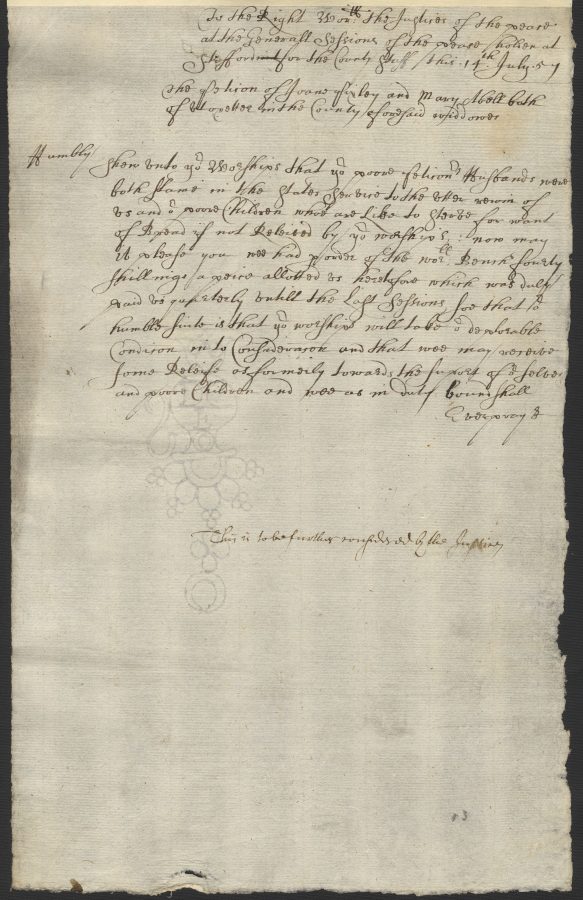 To the Right Wor:ll the Justices of the peace
at the Generall Sessions of the peace holden at
Stafford for the County Staff: this 14th July 57
The peticon of Joane and Mary Abell both
of Utoxetter in the County aforesaid widdowes
Humbly
Shew unto yor Worships that yor poore peticonrs Husbands were
both slaine in the States Service to the utter ruein of
us and or poore Children who are like to sterve for want
of Bread if not Releived by yor worships: now may
it please you wee had p order of the worll Bench fourty
shillings a peice allotted us heretofore which was duly
paid us quarterly untill the Last Sessions soe that or
humble suite is that yor worships will take or deplorable
Condicon in to Consideracon and that wee may receive
some Releife as formerly towards the suport of or selves
and poore Children and wee as in duty bound shall
Ever pray &
This is to be further considered by the Justices
13